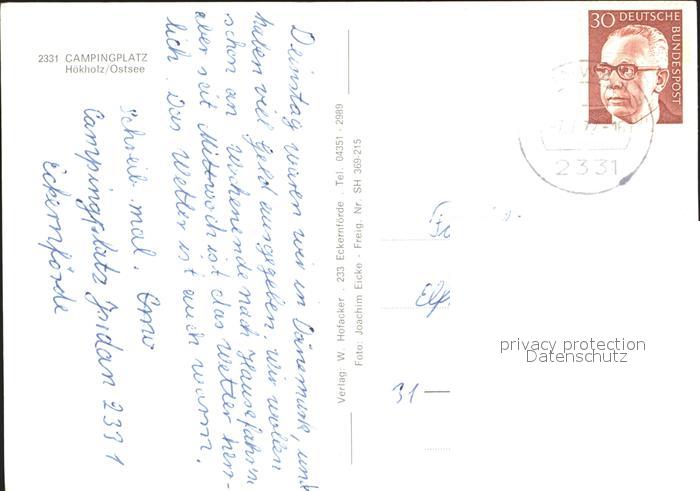 2331 CAMPINGPLATZ
Hökholz/Ostsee
Dienstag waren wir in Dänemark, und
haben viel Geld ausgegeben. Wir wollen
schon am Wochenende nach Hause fahren
aber seit Mittwoch ist das Wetter herr-
lich. Das Wetter ist auch warm.
Schreib mal.
Campingplatz 2331
Eckernförde
Verlag: W. Hofacker . 233 Eckernförde . Tel. 04351 - 2989
Foto: Joachim Eicke - Freig. Nr. SH 369-215
30 DEUTSCHE
BUNDESPOST
2331
31
privacy protection
Datenschutz